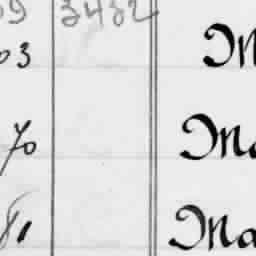 09 3432
03 M
70 Ma
81 Ma